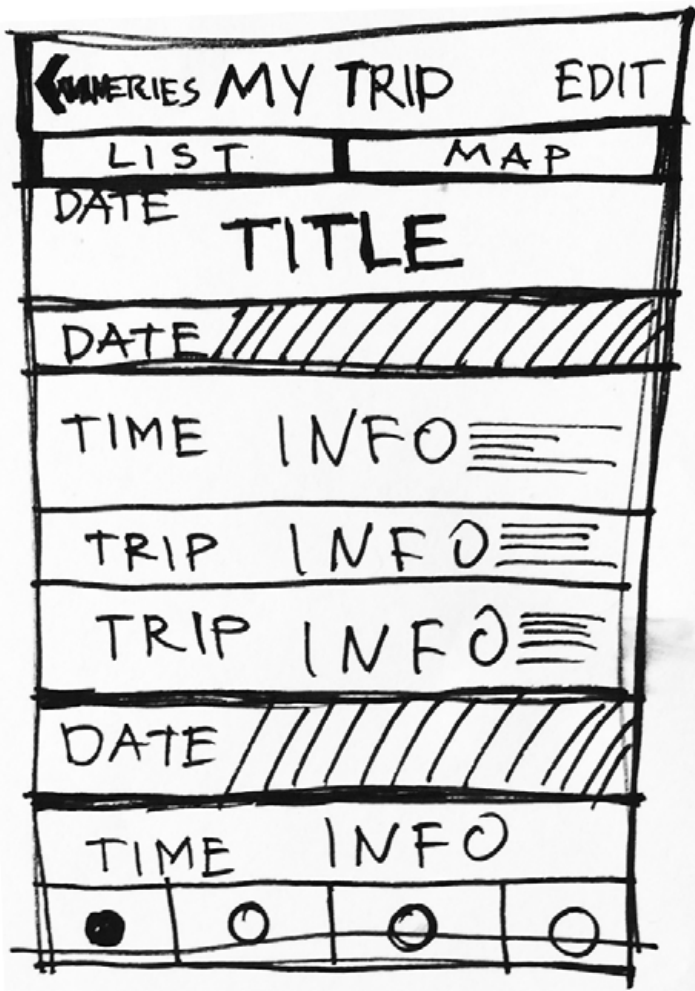 WINERIES MY TRIP EDIT
LIST MAP
DATE
TITLE
DATE
TIME INFO
TRIP INFO
TRIP INFO
DATE
TIME INFO